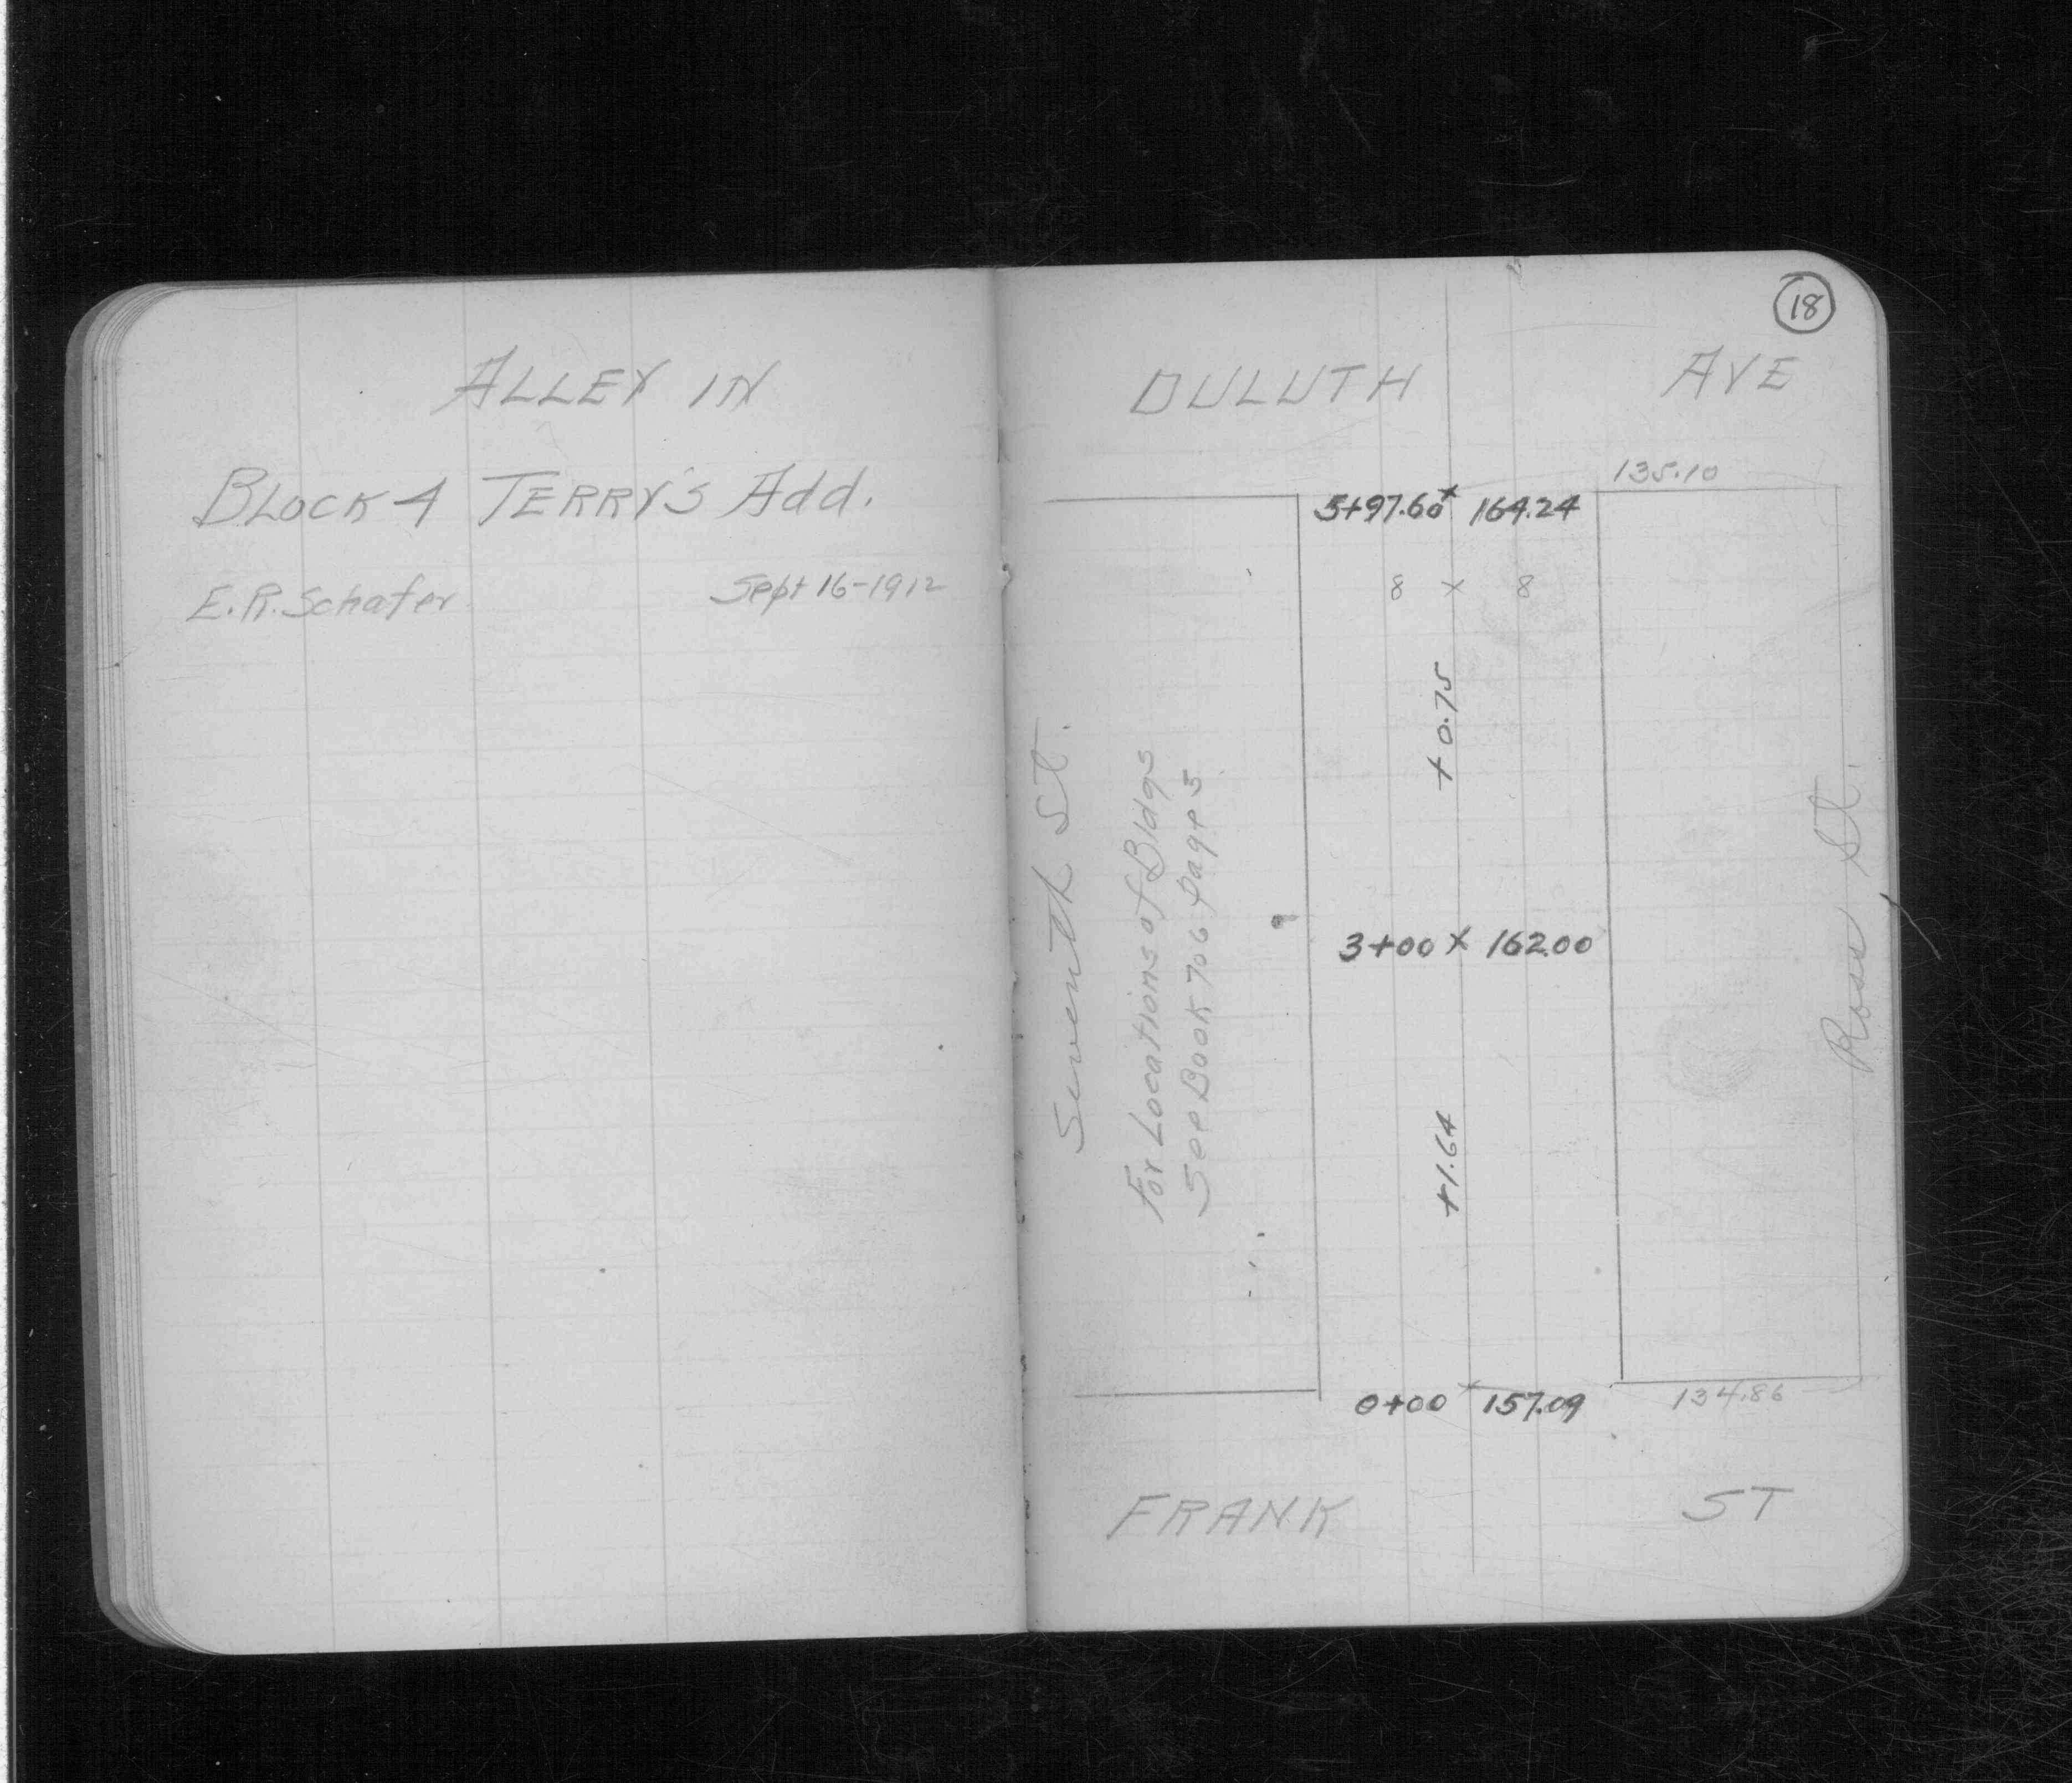 ALLEY IN
BLOCK 4 TERRY'S Add.
E.R. Schafer Sept 16-1912
18
DULUTH AVE
135.10
5+97.60 x 164.24
8 x 8
+0.75
Seventh St.
For Locations of Bldgs
See Book 706 Page 5
3+00 x 162.00
Ross St.
+1.64
0+00 x 157.09
134.86
FRANK ST